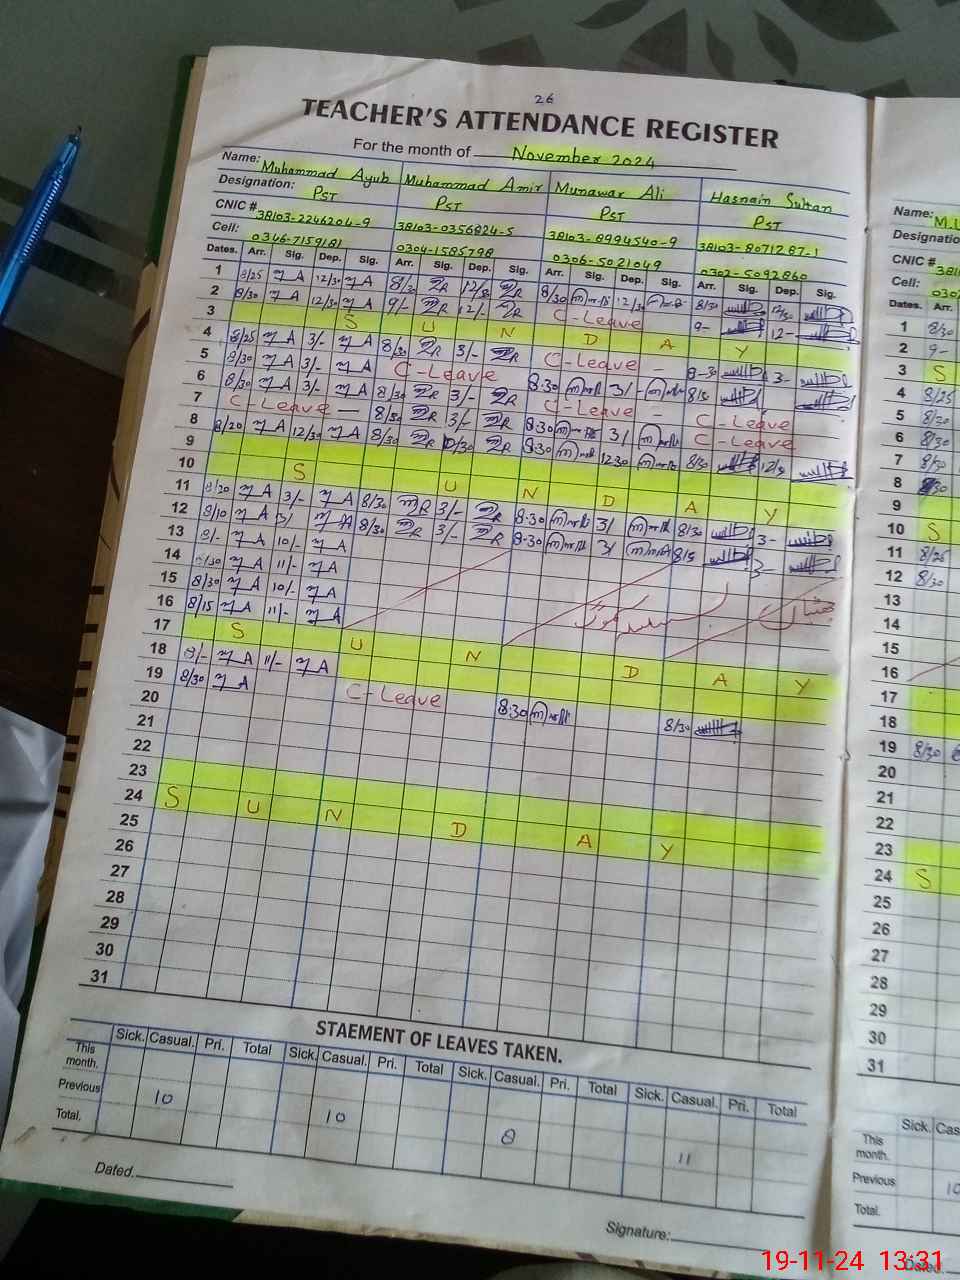 26
TEACHER'S ATTENDANCE REGISTER
For the month of November 2024
Name: Muhammad Ayub Muhammad Amir Munawar Ali Hasnain Sultan
Designation: PST PST PST PST
CNIC # 38103-2246204-9 38103-0356824-5 38103-8994540-9 38103-8071287-1
Cell: 0346-7159181 0304-1585798 0306-5021049 0302-5092860
Dates. Arr. Sig. Dep. Sig. Arr. Sig. Dep. Sig. Arr. Sig. Dep. Sig. Arr. Sig. Dep. Sig.
1 8/25 12/30 8/30 12/30 8/30 12/30 8/30 12/30
2 8/30 12/30 9/- 12/- C-Leave 9- 12-
3 S U N D A Y
4 8/25 3/- 8/30 3/- C-Leave - 8-30 3-
5 8/30 3/- C-Leave 8:30 3/- 8/30
6 8/30 3/- 8/30 3/- C-Leave - C-Leave
7 C-Leave - 8/30 3/- 8:30 3/ C-Leave
8 8/20 12/30 8/30 12/30 8:30 12:30 8/30 12/30
9
10 S U N D A Y
11 8/20 3/- 8/30 3/- 8:30 3/ 8/30 3-
12 8/10 3/ 8/30 3/- 8:30 3/ 8/15 3-
13 8/- 10/-
14 8/30 11/-
15 8/30 10/-
16 8/15 11/-
17 S U N D A Y
18 8/- 11/-
19 8/30 C-Leave 8:30 8/30
20
21
22
23
24 S U N D A Y
25
26
27
28
29
30
31
STAEMENT OF LEAVES TAKEN.
Sick. Casual. Pri. Total Sick. Casual. Pri. Total Sick. Casual. Pri. Total Sick. Casual. Pri. Total
This month.
Previous 10 10 8 11
Total.
Dated.
Signature:
Name: M.U
Designatio
CNIC # 381
Cell: 030
Dates. Arr.
1 8/30
2 9-
3 S
4 8/25
5 8/20
6 8/30
7 8/30
8
9
10 S
11 8/25
12 8/30
13
14
15
16
17
18
19 8/30
20
21
22
23
24 S
25
26
27
28
29
30
31
Sick. Cas
This month.
Previous 10
Total.
Dated.
19-11-24 13:31